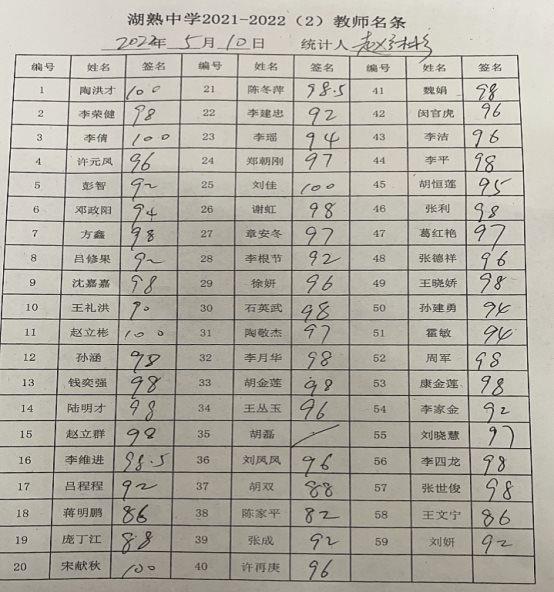 湖熟中学2021-2022（2）教师名条
2022年 5月 10日 统计人
编号 姓名 签名 编号 姓名 签名 编号 姓名 签名
1 陶洪才 100 21 陈冬萍 98.5 41 魏娟 98
2 李荣健 98 22 李建忠 92 42 闵官虎 96
3 李倩 100 23 李瑶 94 43 李洁 96
4 许元凤 96 24 郑朝刚 97 44 李平 98
5 彭智 92 25 刘佳 100 45 胡恒莲 95
6 邓政阳 94 26 谢虹 98 46 张利 98
7 方鑫 98 27 章安冬 97 47 葛红艳 97
8 吕修果 92 28 李根节 92 48 张德祥 96
9 沈嘉嘉 98 29 徐妍 96 49 王晓娇 98
10 王礼洪 90 30 石英武 98 50 孙建勇 94
11 赵立彬 100 31 陶敬杰 97 51 霍敏 94
12 孙涵 98 32 李月华 98 52 周军 98
13 钱奕强 98 33 胡金莲 98 53 康金莲 98
14 陆明才 98 34 王丛玉 96 54 李家金 92
15 赵立群 98 35 胡磊 55 刘晓慧 97
16 李维进 98.5 36 刘凤凤 96 56 李四龙 98
17 吕程程 92 37 胡双 88 57 张世俊 98
18 蒋明鹏 86 38 陈家平 82 58 王文宁 86
19 庞丁江 88 39 张成 92 59 刘妍 92
20 宋献秋 100 40 许再庚 96